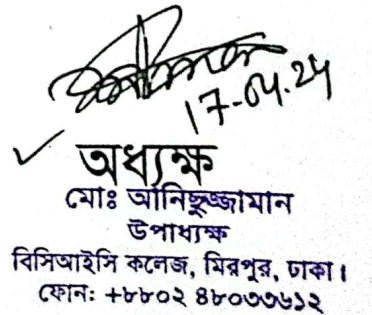 17-04-24
✓ অধ্যক্ষ
মোঃ আনিছুজ্জামান
উপাধ্যক্ষ
বিসিআইসি কলেজ, মিরপুর, ঢাকা।
ফোনঃ +৮৮০২ ৪৮০৩৩৬১২